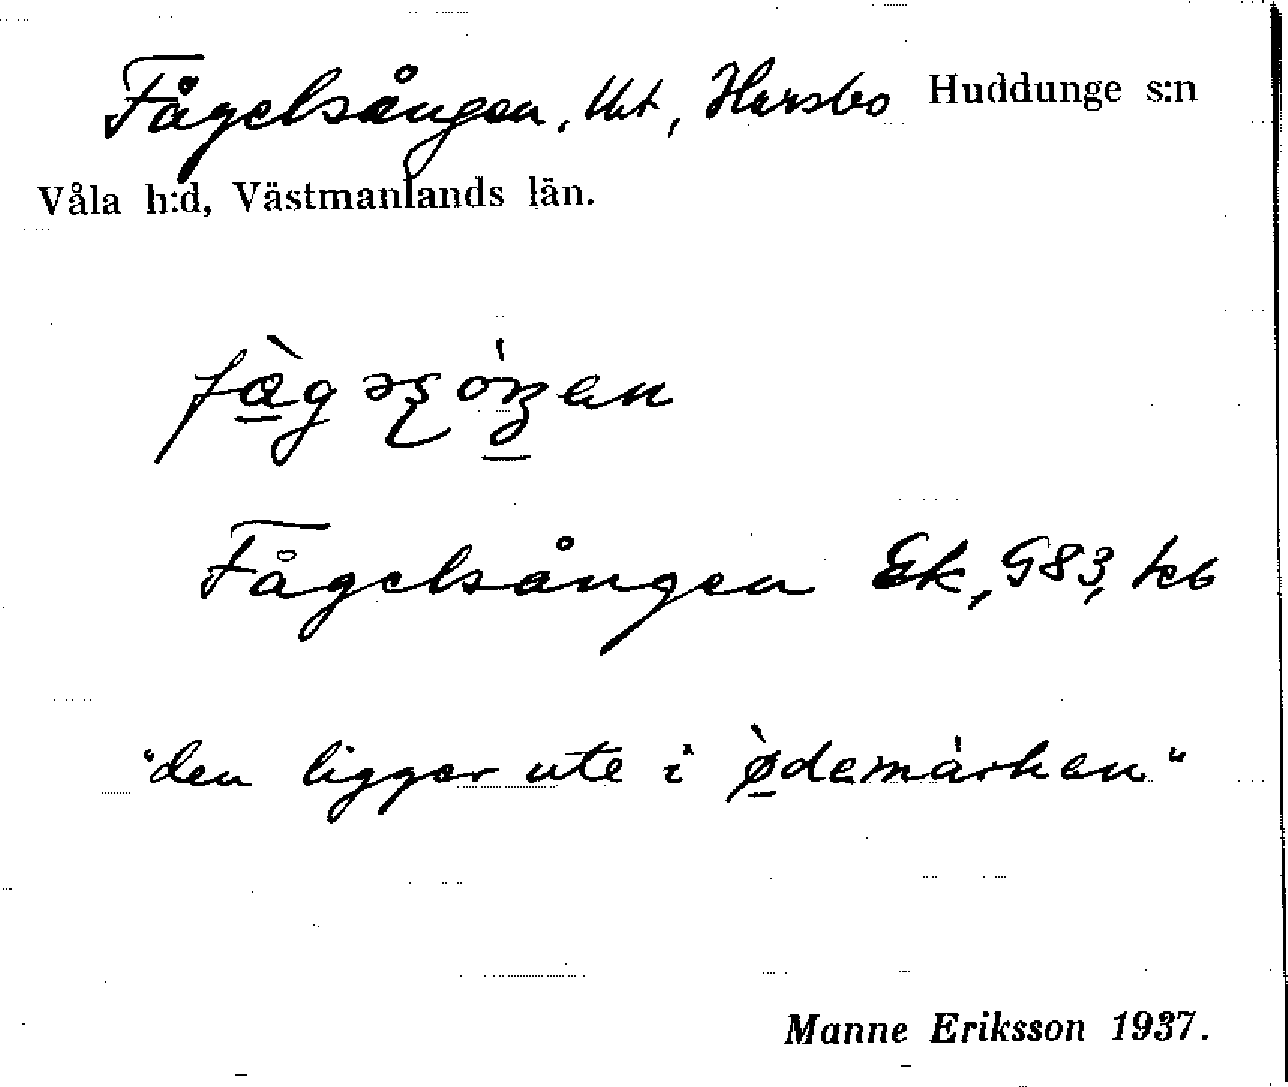 Fågelsången, Uut, Harsbo Huddunge s:n
Våla h:d, Västmanlands län.
Fågelsången Ek, G83, kb
"den ligger ute i ødemàrken"
Manne Eriksson 1937.